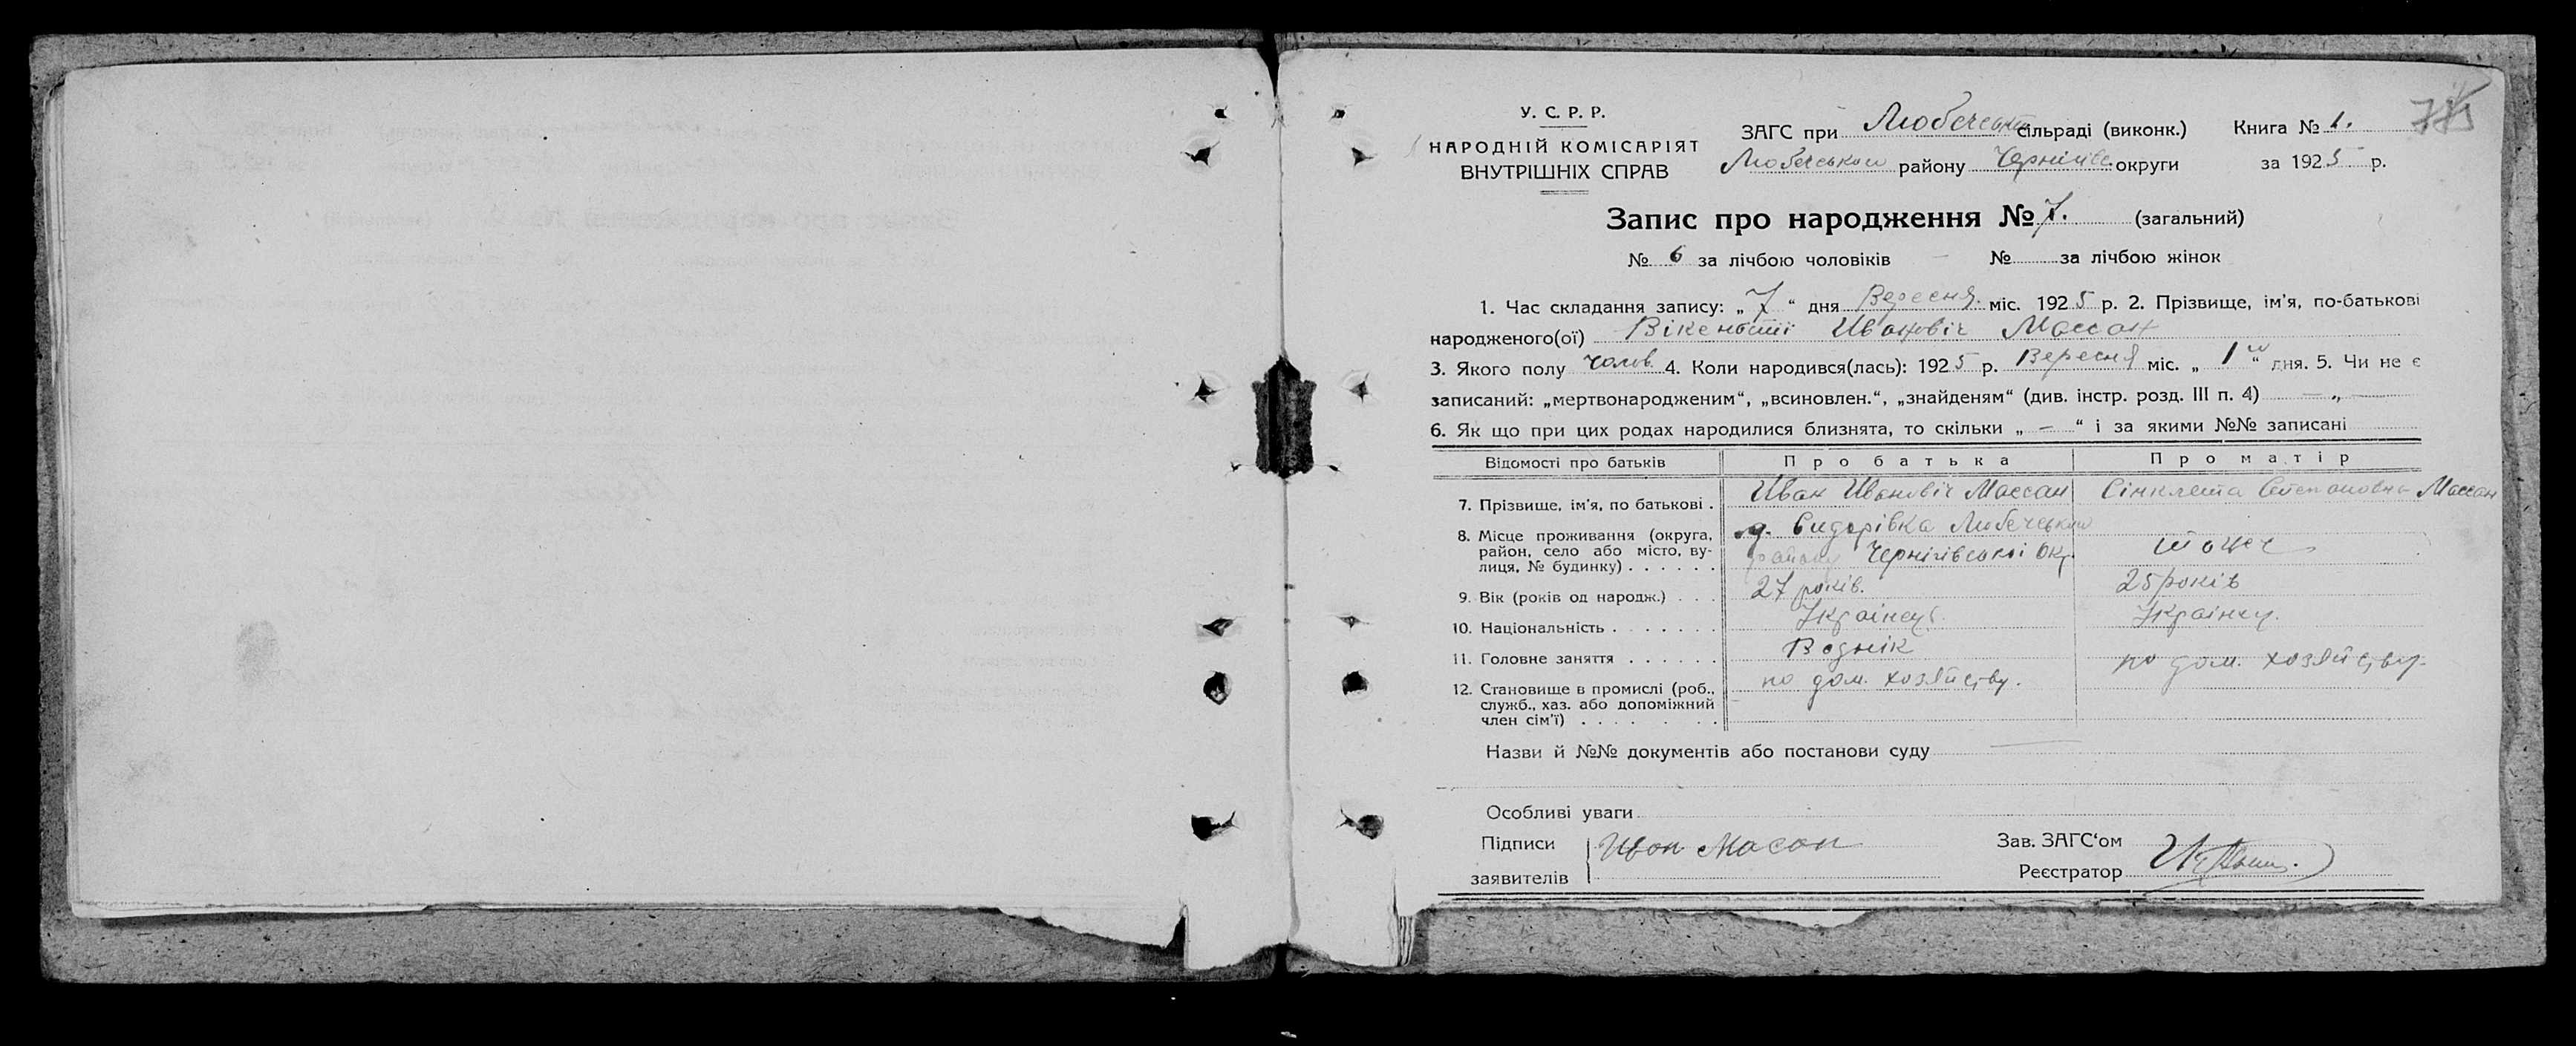 У. С. Р. Р.
НАРОДНІЙ КОМІСАРІЯТ
ВНУТРІШНІХ СПРАВ
ЗАГС при Любечській сільраді (виконк.) Книга № 1.
Любечського району Чернігівс. округи за 1925 р.
Запис про народження № 7. (загальний)
№ 6 за лічбою чоловіків № за лічбою жінок
1. Час складання запису: „ 7 “ дня Вересня міс. 1925 р. 2. Прізвище, ім'я, по-батькові
народженого(ої) Вікентій Иванович Массан
3. Якого полу чолов. 4. Коли народився(лась): 1925 р. Вересня міс. „ 1 “ дня. 5. Чи не є
записаний: „мертвонародженим“, „всиновлен.“, „знайденям“ (див. інстр. розд. III п. 4) — „ —
6. Як що при цих родах народилися близнята, то скільки „ — “ і за якими №№ записані
Відомості про батьків Про батька Про матір
7. Прізвище, ім'я, по батькові . Иван Иванович Массан Сінклета Степановна Массан
8. Місце проживання (округа, район, село або місто, вулиця, № будинку) . . . . . .
д. Сидорівка Любечського
району Чернігівської Окр. тоже
9. Вік (років од народж.) . . . 27 років. 25 років
10. Національність . . . . . . . Українец Українец.
11. Головне заняття . . . . . .
по дом. хозяйству.
12. Становище в промислі (роб., служб., хаз. або допоміжний член сім'ї) . . . . . . .
по дом. хозяйству.
Назви й №№ документів або постанови суду
Особливі уваги
Підписи
заявителів
Иван Масан
Зав. ЗАГС'ом
Реєстратор